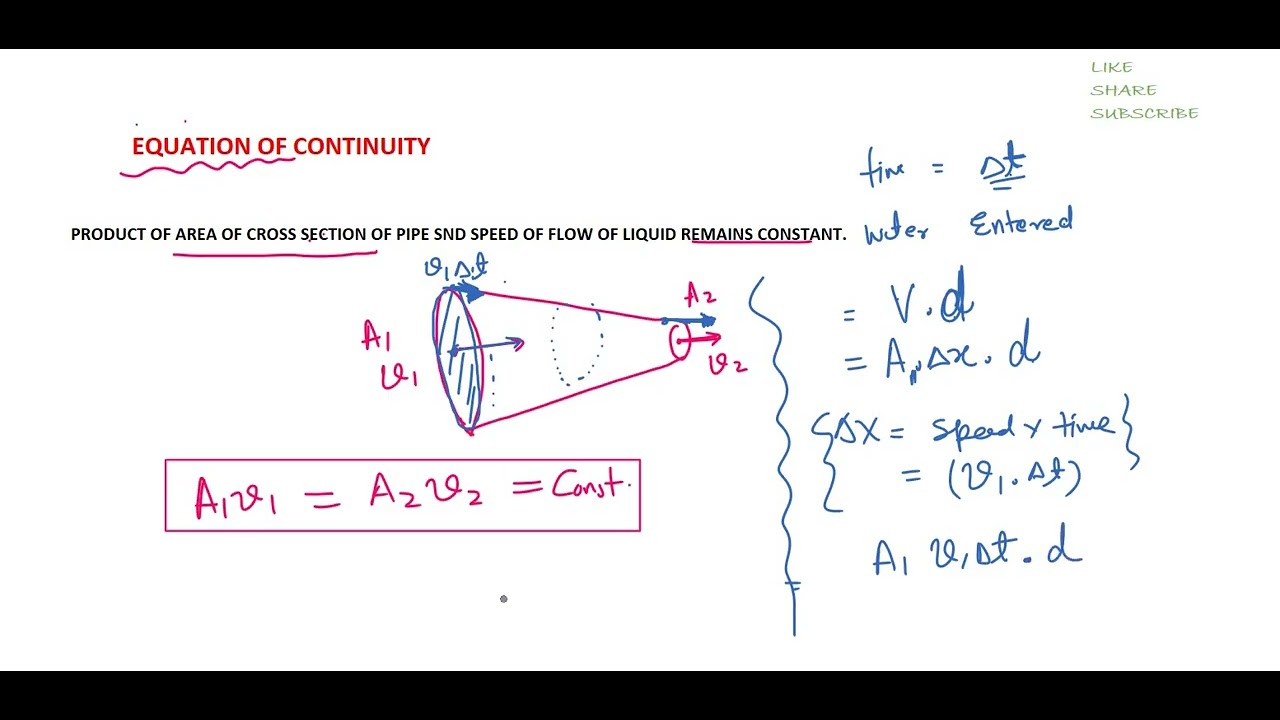 LIKE
SHARE
SUBSCRIBE
EQUATION OF CONTINUITY
PRODUCT OF AREA OF CROSS SECTION OF PIPE SND SPEED OF FLOW OF LIQUID REMAINS CONSTANT.
v₁Δt
A₁
v₁
A₂
v₂
A₁v₁ = A₂v₂ = Const.
time = Δt
Water Entered
= V.d
= A₁.Δx.d
{Δx = Speed × time}
= (v₁.Δt)
= A₁ v₁Δt.d